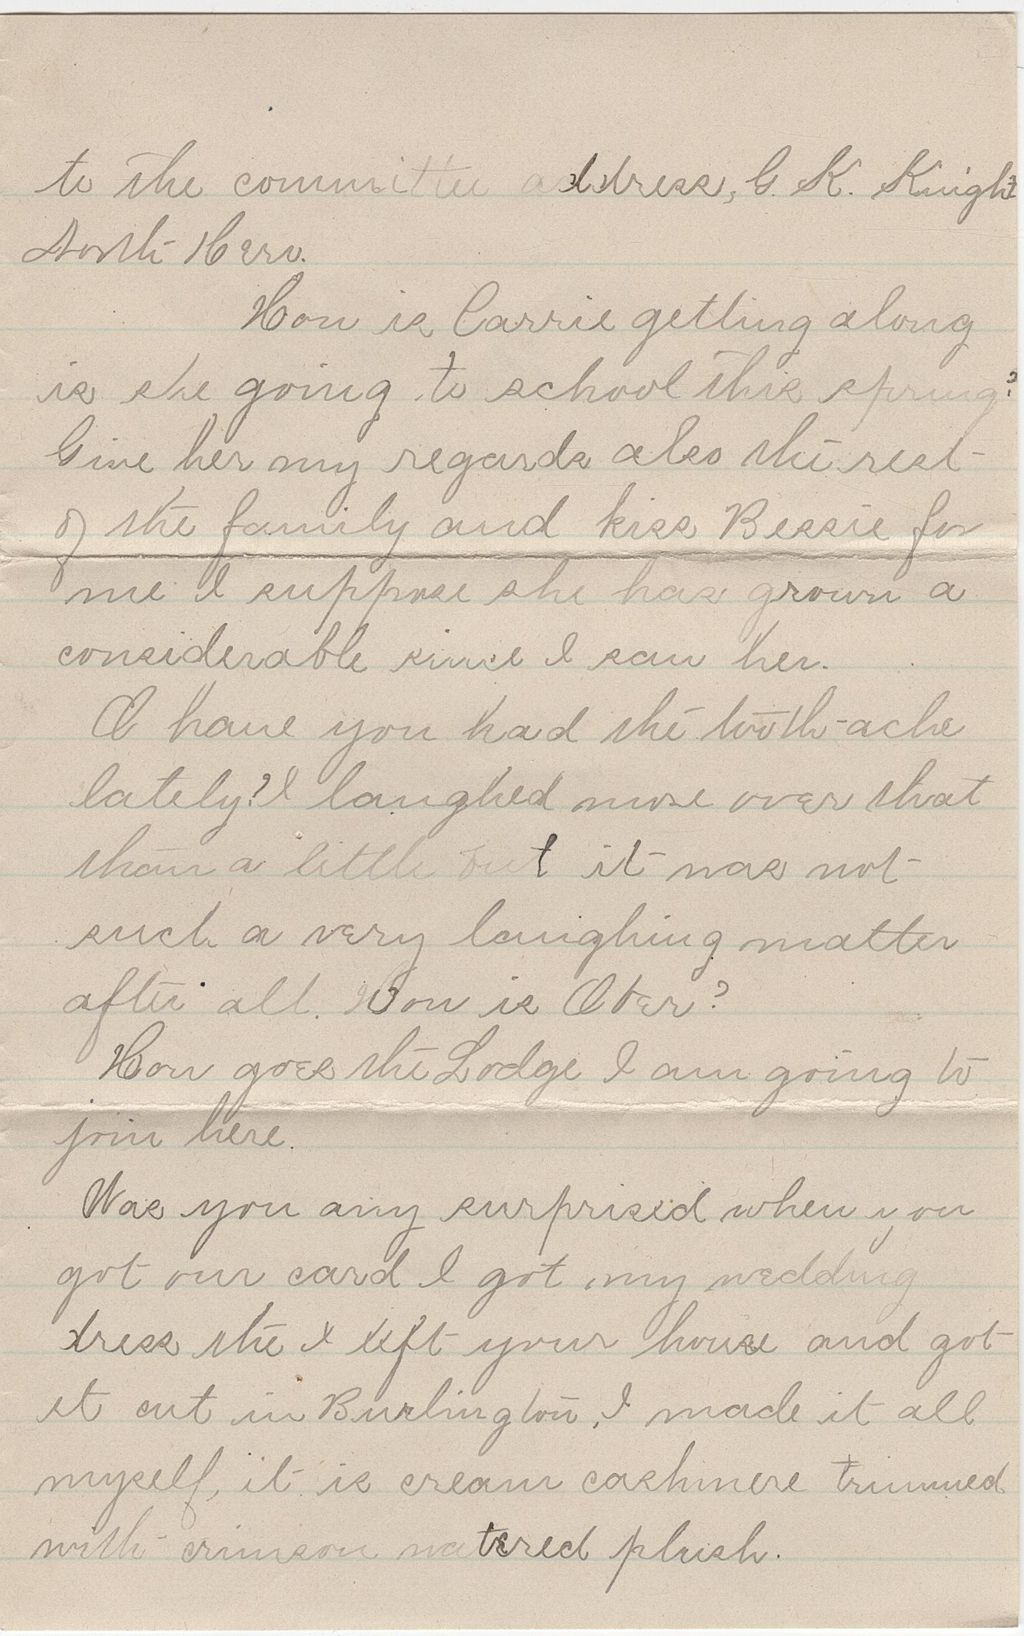 to the committee address, G. K. Knight
North Hero.
How is Carrie getting along
is she going to school this spring?
Give her my regards also the rest
of the family and kiss Bessie for
me I suppose she has grown a
considerable since I saw her.
O have you had the tooth-ache
lately? I laughed more over that
than a little but it was not
such a very laughing matter
after all. How is Ober?
How goes the Lodge I am going to
join here.
Was you any surprised when you
got our card I got my wedding
dress the I left your house and got
it cut in Burlington, I made it all
myself, it is cream cashmere trimmed
with crimson watered plush.